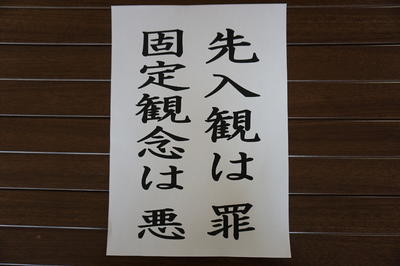 先入観は 罪
固定観念は 悪